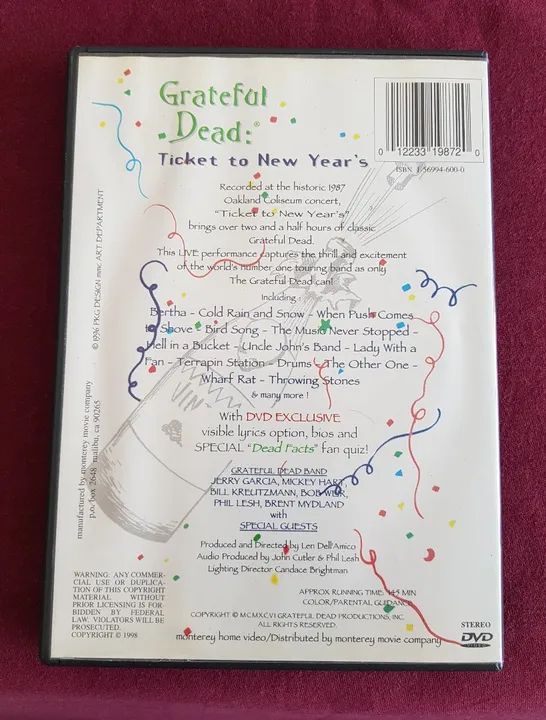 Grateful
Dead:®
Ticket to New Year's
0 12233 19872 0
ISBN 1-56994-600-0
Recorded at the historic 1987
Oakland Coliseum concert,
"Ticket to New Year's"
brings over two and a half hours of classic
Grateful Dead.
This LIVE performance captures the thrill and excitement
of the world's number one touring band as only
The Grateful Dead can!
Including:
Bertha - Cold Rain and Snow - When Push Comes
to Shove - Bird Song - The Music Never Stopped -
Hell in a Bucket - Uncle John's Band - Lady With a
Fan - Terrapin Station - Drums - The Other One -
Wharf Rat - Throwing Stones
& many more!
With DVD EXCLUSIVE
visible lyrics option, bios and
SPECIAL "Dead Facts" fan quiz!
GRATEFUL DEAD BAND
JERRY GARCIA, MICKEY HART,
BILL KREUTZMANN, BOB WEIR,
PHIL LESH, BRENT MYDLAND
with
SPECIAL GUESTS
Produced and Directed by Len Dell'Amico
Audio Produced by John Cutler & Phil Lesh
Lighting Director Candace Brightman
APPROX RUNNING TIME: 145 MIN
COLOR/PARENTAL GUIDANCE
COPYRIGHT © MCMXCVI GRATEFUL DEAD PRODUCTIONS, INC.
ALL RIGHTS RESERVED.
monterey home video/Distributed by monterey movie company
STEREO
DVD
VIDEO
WARNING: ANY COMMER-
CIAL USE OR DUPLICA-
TION OF THIS COPYRIGHT
MATERIAL WITHOUT
PRIOR LICENSING IS FOR-
BIDDEN BY FEDERAL
LAW. VIOLATORS WILL BE
PROSECUTED.
COPYRIGHT © 1998
© 1996 PKG DESIGN mmc ART DEPARTMENT
manufactured by monterey movie company
p.o. box 2648 malibu, ca 90265